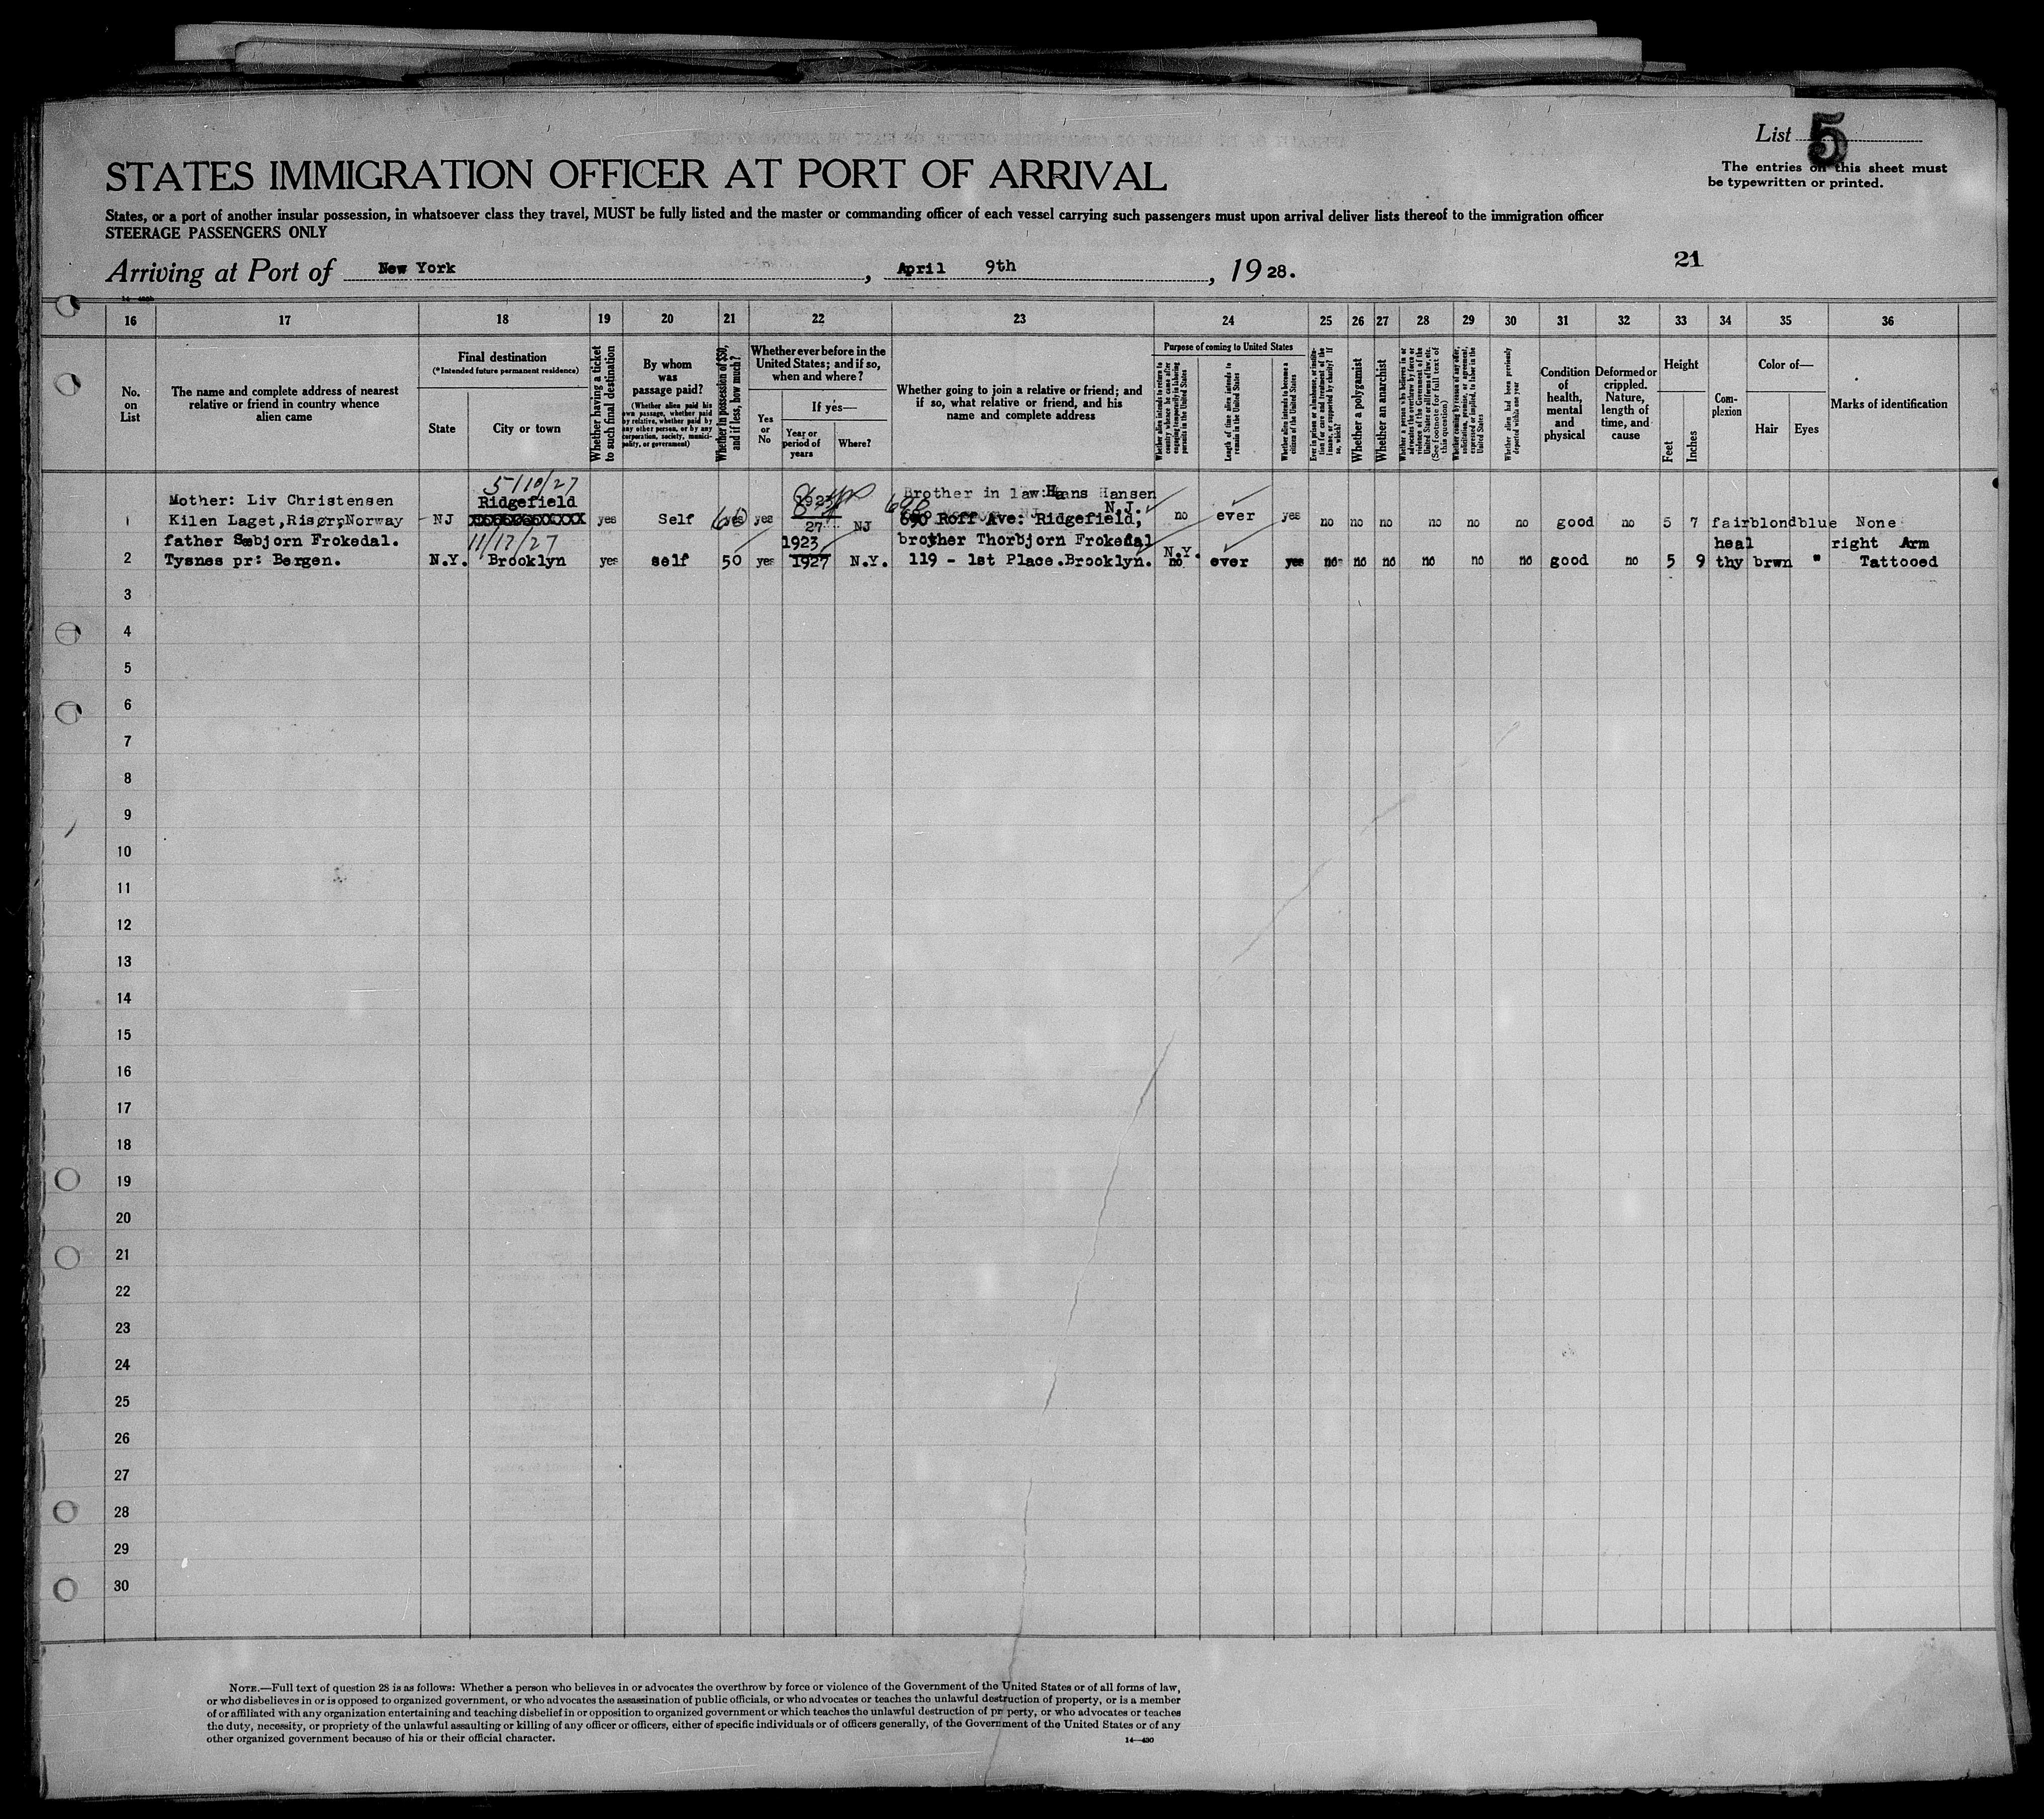 List 5
The entries on this sheet must
be typewritten or printed.
STATES IMMIGRATION OFFICER AT PORT OF ARRIVAL
States, or a port of another insular possession, in whatsoever class they travel, MUST be fully listed and the master or commanding officer of each vessel carrying such passengers must upon arrival deliver lists thereof to the immigration officer
STEERAGE PASSENGERS ONLY
21
Arriving at Port of New York, April 9th, 1928.
16 17 18 19 20 21 22 23 24 25 26 27 28 29 30 31 32 33 34 35 36
No. on List
The name and complete address of nearest
relative or friend in country whence
alien came
Final destination
(*Intended future permanent residence)
State
City or town
Whether having a ticket
to such final destination
By whom
was
passage paid?
(Whether alien paid his
own passage, whether paid
by relative, whether paid by
any other person, or by any
corporation, society, munici-
pality, or government)
Whether in possession of $50,
and if less, how much?
Whether ever before in the
United States; and if so,
when and where?
Yes
or
No
If yes—
Year or
period of
years
Where?
Whether going to join a relative or friend; and
if so, what relative or friend, and his
name and complete address
Purpose of coming to United States
Whether alien intends to return to
country whence he came after
engaging temporarily in laboring
pursuits in the United States
Length of time alien intends to
remain in the United States
Whether alien intends to become a
citizen of the United States
Ever in prison or almshouse, or institu-
tion for care and treatment of the
insane, or supported by charity? If
so, which?
Whether a polygamist
Whether an anarchist
Whether a person who believes in or
advocates the overthrow by force or
violence of the Government of the
United States or all forms of law, etc.
(See footnote for full text of
this question)
Whether coming by reason of any offer,
solicitation, promise, or agreement,
expressed or implied, to labor in the
United States
Whether alien had been previously
deported within one year
Condition
of
health,
mental
and
physical
Deformed or
crippled.
Nature,
length of
time, and
cause
Height
Feet
Inches
Com-
plexion
Color of—
Hair
Eyes
Marks of identification
5/10/27
Mother: Liv Christensen Ridgefield 1923 Brother in law: Hans Hansen N.J.
1 Kilen Laget, Risør, Norway NJ yes Self yes yes 27 NJ 690 Roff Ave: Ridgefield, no ever yes no no no no no no good no 5 7 fair blond blue None
father Sæbjorn Frokedal. 11/17/27 1923 brother Thorbjorn Frokedal N.Y. heal right Arm
2 Tysnes pr: Bergen. N.Y. Brooklyn yes self 50 yes 1927 N.Y. 119 - 1st Place. Brooklyn. no ever yes no no no no no no good no 5 9 thy brwn " Tattooed
3
4
5
6
7
8
9
10
11
12
13
14
15
16
17
18
19
20
21
22
23
24
25
26
27
28
29
30
NOTE.—Full text of question 28 is as follows: Whether a person who believes in or advocates the overthrow by force or violence of the Government of the United States or of all forms of law,
or who disbelieves in or is opposed to organized government, or who advocates the assassination of public officials, or who advocates or teaches the unlawful destruction of property, or is a member
of or affiliated with any organization entertaining and teaching disbelief in or opposition to organized government or which teaches the unlawful destruction of property, or who advocates or teaches
the duty, necessity, or propriety of the unlawful assaulting or killing of any officer or officers, either of specific individuals or of officers generally, of the Government of the United States or of any
other organized government because of his or their official character.
14—430